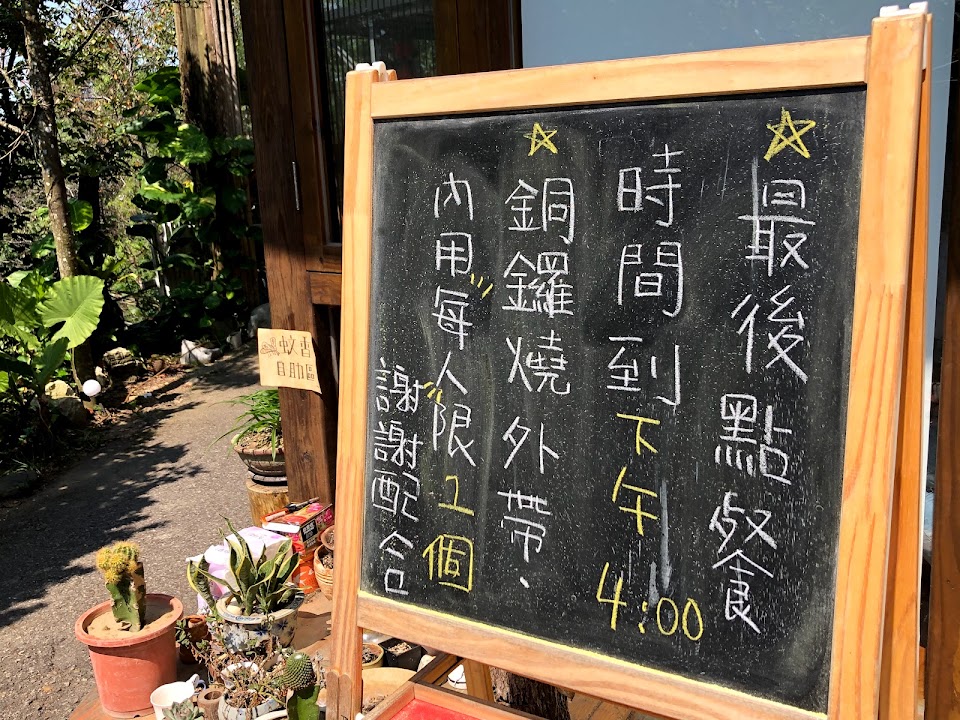 ☆最後點餐
時間到下午4:00
☆銅鑼燒外帶.
內用每人限1個
謝謝配合
蚊香
自助區